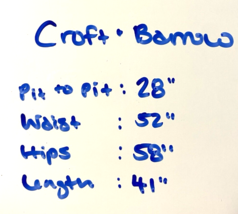 Croft • Barrow
Pit to Pit : 28"
Waist : 52"
Hips : 58"
Length : 41"